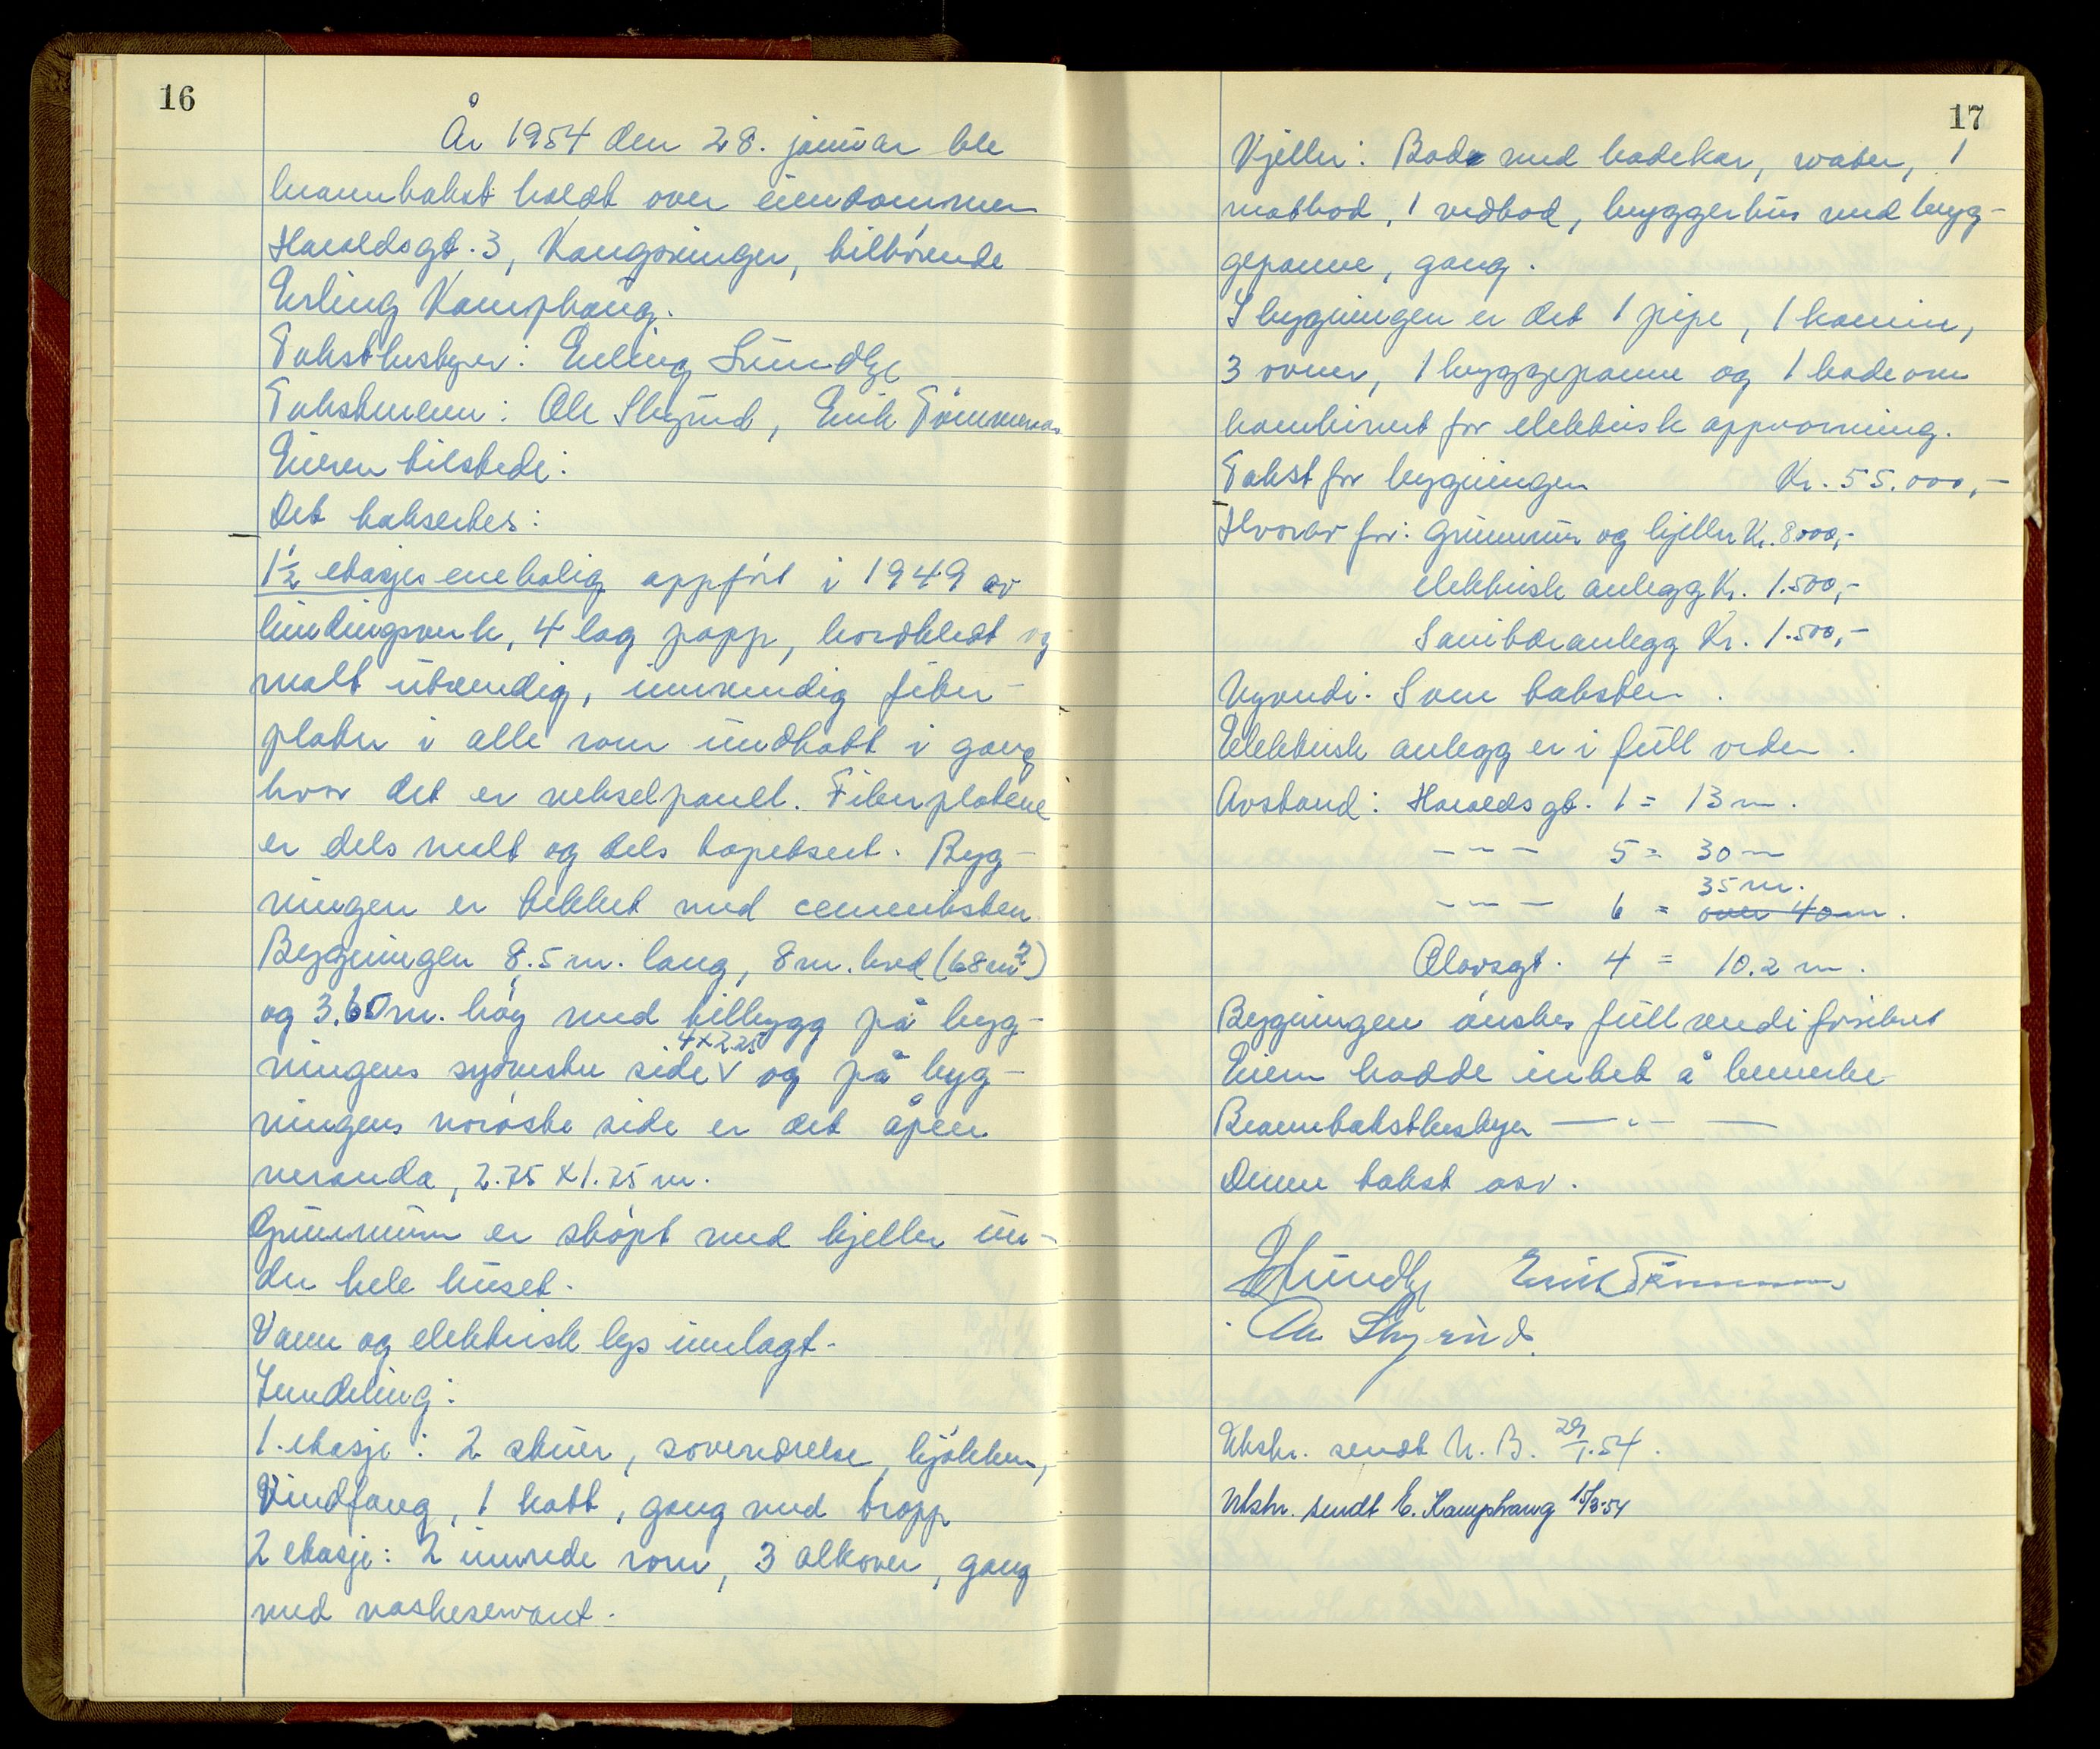 16
År 1954 den 28. januar ble
branntakst holdt over eiendommen
Haraldsgt. 3, Kongsvinger, tilhörende
Erling Kamphaug.
Takstbestyrer: Erling Lundby
Takstmenn: Ole Skyrud, Erik Tömmeraas
Eieren tilstede:
Det taksertes:
1½ etasjes enebolig oppfört i 1949 av
bindingsverk, 4 lag papp, bordkledt og
malt utvendig, innvendig fiber-
plater i alle rom undtatt i gang
hvor det er vekselpanel. Fiberplatene
er dels malt og dels tapetsert. Byg-
ningen er tekket med cementsten.
Bygningen 8.5 m. lang, 8 m. bred (68 m²)
og 3.60 m. höy med tilbygg på byg-
4 x 2.25
ningens sydvestre side V og på byg-
ningens nordöste side er det åpen
veranda, 2.75 x 1.75 m.
Grunnmur er stöpt med kjeller un-
der hele huset.
Vann og elektrisk lys innlagt.
Inndeling:
1. etasje: 2 stuer, soveværelse, kjökken,
Vindfang, 1 kott, gang med tropp
2 etasje: 2 innrede rom, 3 alkover, gang
med vaskeservant.
17
Kjeller: Bad med badekar, vater, 1
matbod, 1 vedbod, bryggerhus med bryg-
gepanne, gang.
I bygningen er det 1 pipe, 1 kamin,
3 ovner, 1 bryggepanne og 1 badeovn
kombinert for elektrisk oppvarming.
Takst for bygningen Kr. 55.000,-
Hvorav for: Grunnmur og kjeller Kr. 8000,-
elektrisk anlegg Kr. 1.500,-
Sanitæranlegg Kr. 1.500,-
Nyverdi. Som taksten.
Elektrisk anlegg er i full orden.
Avstand: Haraldsgt. 1 = 13 m.
- " - 5 = 30 m
35 m.
- " - 6 = over 40 m.
Olavsgt. 4 = 10.2 m.
Bygningen önskes fullverdiforsikret
Eieren hadde intet å bemerke
Branntakstbestyrer - " -
Denne takst osv.
E Lundby Erik Tömmeraas
Ole Skyrud.
Utskr. sendt N. B. 29/1.54.
Utskr. sendt E. Kamphaug 15/3-54